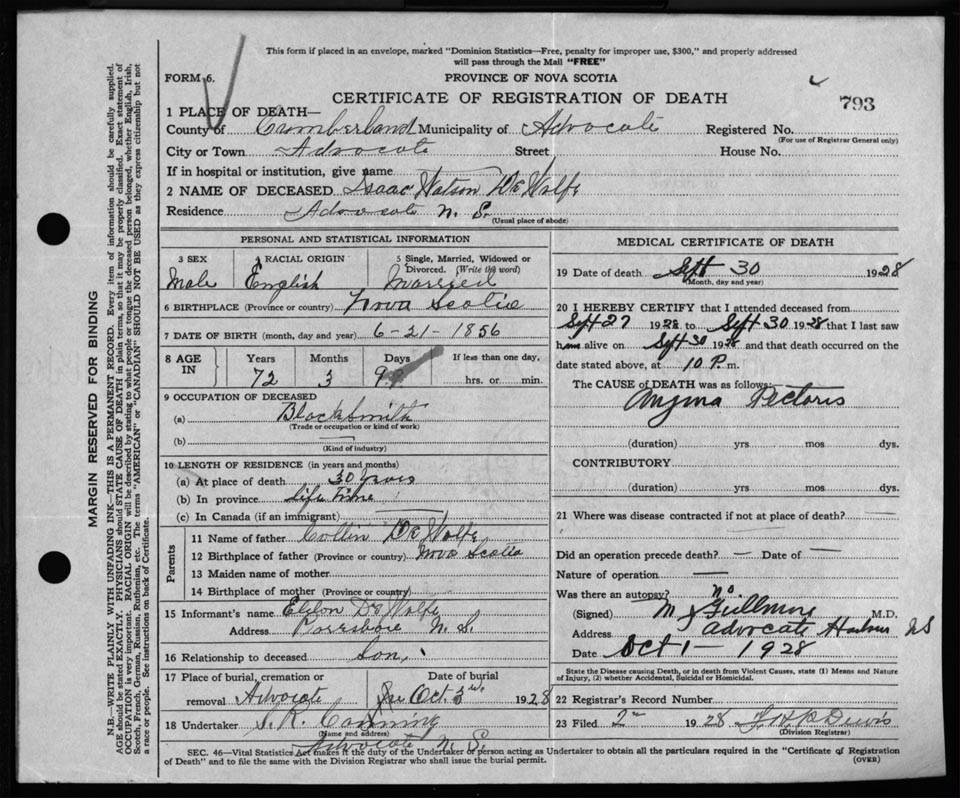 This form if placed in an envelope, marked "Dominion Statistics—Free, penalty for improper use, $300," and properly addressed
will pass through the Mail "FREE"
FORM 6.
PROVINCE OF NOVA SCOTIA
CERTIFICATE OF REGISTRATION OF DEATH
793
1 PLACE OF DEATH—
County of Cumberland Municipality of Advocate Registered No.
(For use of Registrar General only)
City or Town Advocate Street House No.
If in hospital or institution, give name
2 NAME OF DECEASED Isaac Watson De Wolfe
Residence Advocate N. S.
(Usual place of abode)
PERSONAL AND STATISTICAL INFORMATION
3 SEX 4 RACIAL ORIGIN 5 Single, Married, Widowed or
Divorced. (Write the word)
Male English Married
6 BIRTHPLACE (Province or country) Nova Scotia
7 DATE OF BIRTH (month, day and year) 6-21-1856
8 AGE IN Years Months Days If less than one day,
72 3 9 hrs. or min.
9 OCCUPATION OF DECEASED
(a) Blacksmith
(Trade or occupation or kind of work)
(b) —
(Kind of industry)
10 LENGTH OF RESIDENCE (in years and months)
(a) At place of death 30 years
(b) In province Life Time
(c) In Canada (if an immigrant)
Parents
11 Name of father Collin De Wolfe
12 Birthplace of father (Province or country) Nova Scotia
13 Maiden name of mother
14 Birthplace of mother (Province or country)
15 Informant's name De Wolfe
Address Parrsboro N. S.
16 Relationship to deceased Son
17 Place of burial, cremation or Date of burial
removal Advocate Oct. 3 1928
18 Undertaker
(Name and address)
Advocate N. S.
MEDICAL CERTIFICATE OF DEATH
19 Date of death Sept 30 1928
(Month, day and year)
20 I HEREBY CERTIFY that I attended deceased from
Sept 27 1928 to Sept 30 1928 that I last saw
him alive on Sept 30 1928 and that death occurred on the
date stated above, at 10 P. m.
The CAUSE of DEATH was as follows:
Angina Pectoris
(duration) yrs mos dys.
CONTRIBUTORY
(duration) yrs. mos dys.
21 Where was disease contracted if not at place of death?
Did an operation precede death? — Date of —
Nature of operation —
Was there an autopsy? no.
(Signed) M Gillmor M.D.
Address Advocate Harbor NS
Date Oct 1 - 1928
State the Disease causing Death, or in death from Violent Causes, state (1) Means and Nature
of Injury, (2) whether Accidental, Suicidal or Homicidal.
22 Registrar's Record Number
23 Filed 1928
(Division Registrar)
SEC. 46—Vital Statistics Act makes it the duty of the Undertaker or person acting as Undertaker to obtain all the particulars required in the "Certificate of Registration
of Death" and to file the same with the Division Registrar who shall issue the burial permit. (OVER)
MARGIN RESERVED FOR BINDING
N.B.—WRITE PLAINLY WITH UNFADING INK—THIS IS A PERMANENT RECORD. Every item of information should be carefully supplied.
AGE should be stated EXACTLY. PHYSICIANS should STATE CAUSE OF DEATH in plain terms, so that it may be properly classified. Exact statement of
OCCUPATION is very important. RACIAL ORIGIN will be described by stating to what people or tongue the deceased person belonged, whether English, Irish,
Scotch, French, German, Russian, Ruthenian, etc. The terms "AMERICAN" or "CANADIAN" SHOULD NOT BE USED as they express citizenship but not
a race or people. See instructions on back of Certificate.